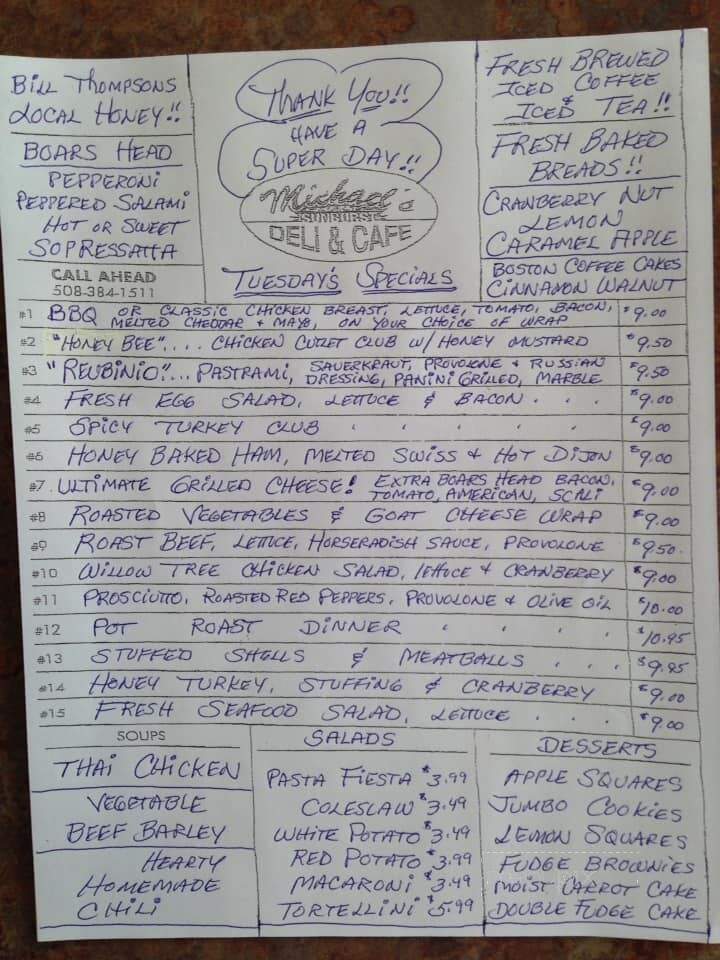 Bill Thompsons
Local Honey!!
Boars Head
Pepperoni
Peppered Salami
Hot or Sweet
Sopressatta
CALL AHEAD
508-384-1511
Thank You!!
Have a
Super Day!!
Michael's
SUNBURST
DELI & CAFE
Tuesday's Specials
Fresh Brewed
Iced Coffee
&
Iced Tea!!
Fresh Baked
Breads!!
Cranberry Nut
Lemon
Caramel Apple
Boston Coffee Cakes
Cinnamon Walnut
#1 BBQ or Classic Chicken Breast, Lettuce, Tomato, Bacon,
Melted Cheddar + Mayo, on your choice of wrap $9.00
#2 "Honey Bee".... Chicken Cutlet Club w/ Honey Mustard $9.50
#3 "Reubinio"... Pastrami, Sauerkraut, Provolone + Russian
Dressing, Panini Grilled, Marble $9.50
#4 Fresh Egg Salad, Lettuce & Bacon . . . $9.00
#5 Spicy Turkey Club $9.00
#6 Honey Baked Ham, Melted Swiss & Hot Dijon $9.00
#7 Ultimate Grilled Cheese! Extra Boars Head Bacon,
Tomato, American, Scali $9.00
#8 Roasted Vegetables & Goat Cheese Wrap $9.00
#9 Roast Beef, Lettuce, Horseradish Sauce, Provolone $9.50
#10 Willow Tree Chicken Salad, Lettuce & Cranberry $9.00
#11 Prosciutto, Roasted Red Peppers, Provolone & Olive Oil $10.00
#12 Pot Roast Dinner $10.95
#13 Stuffed Shells & Meatballs . . . $9.95
#14 Honey Turkey, Stuffing & Cranberry $9.00
#15 Fresh Seafood Salad, Lettuce . . . $9.00
SOUPS
Thai Chicken
Vegetable
Beef Barley
Hearty
Homemade
Chili
Salads
Pasta Fiesta $3.99
Coleslaw $3.49
White Potato $3.49
Red Potato $3.99
Macaroni $3.49
Tortellini $5.99
Desserts
Apple Squares
Jumbo Cookies
Lemon Squares
Fudge Brownies
Moist Carrot Cake
Double Fudge Cake